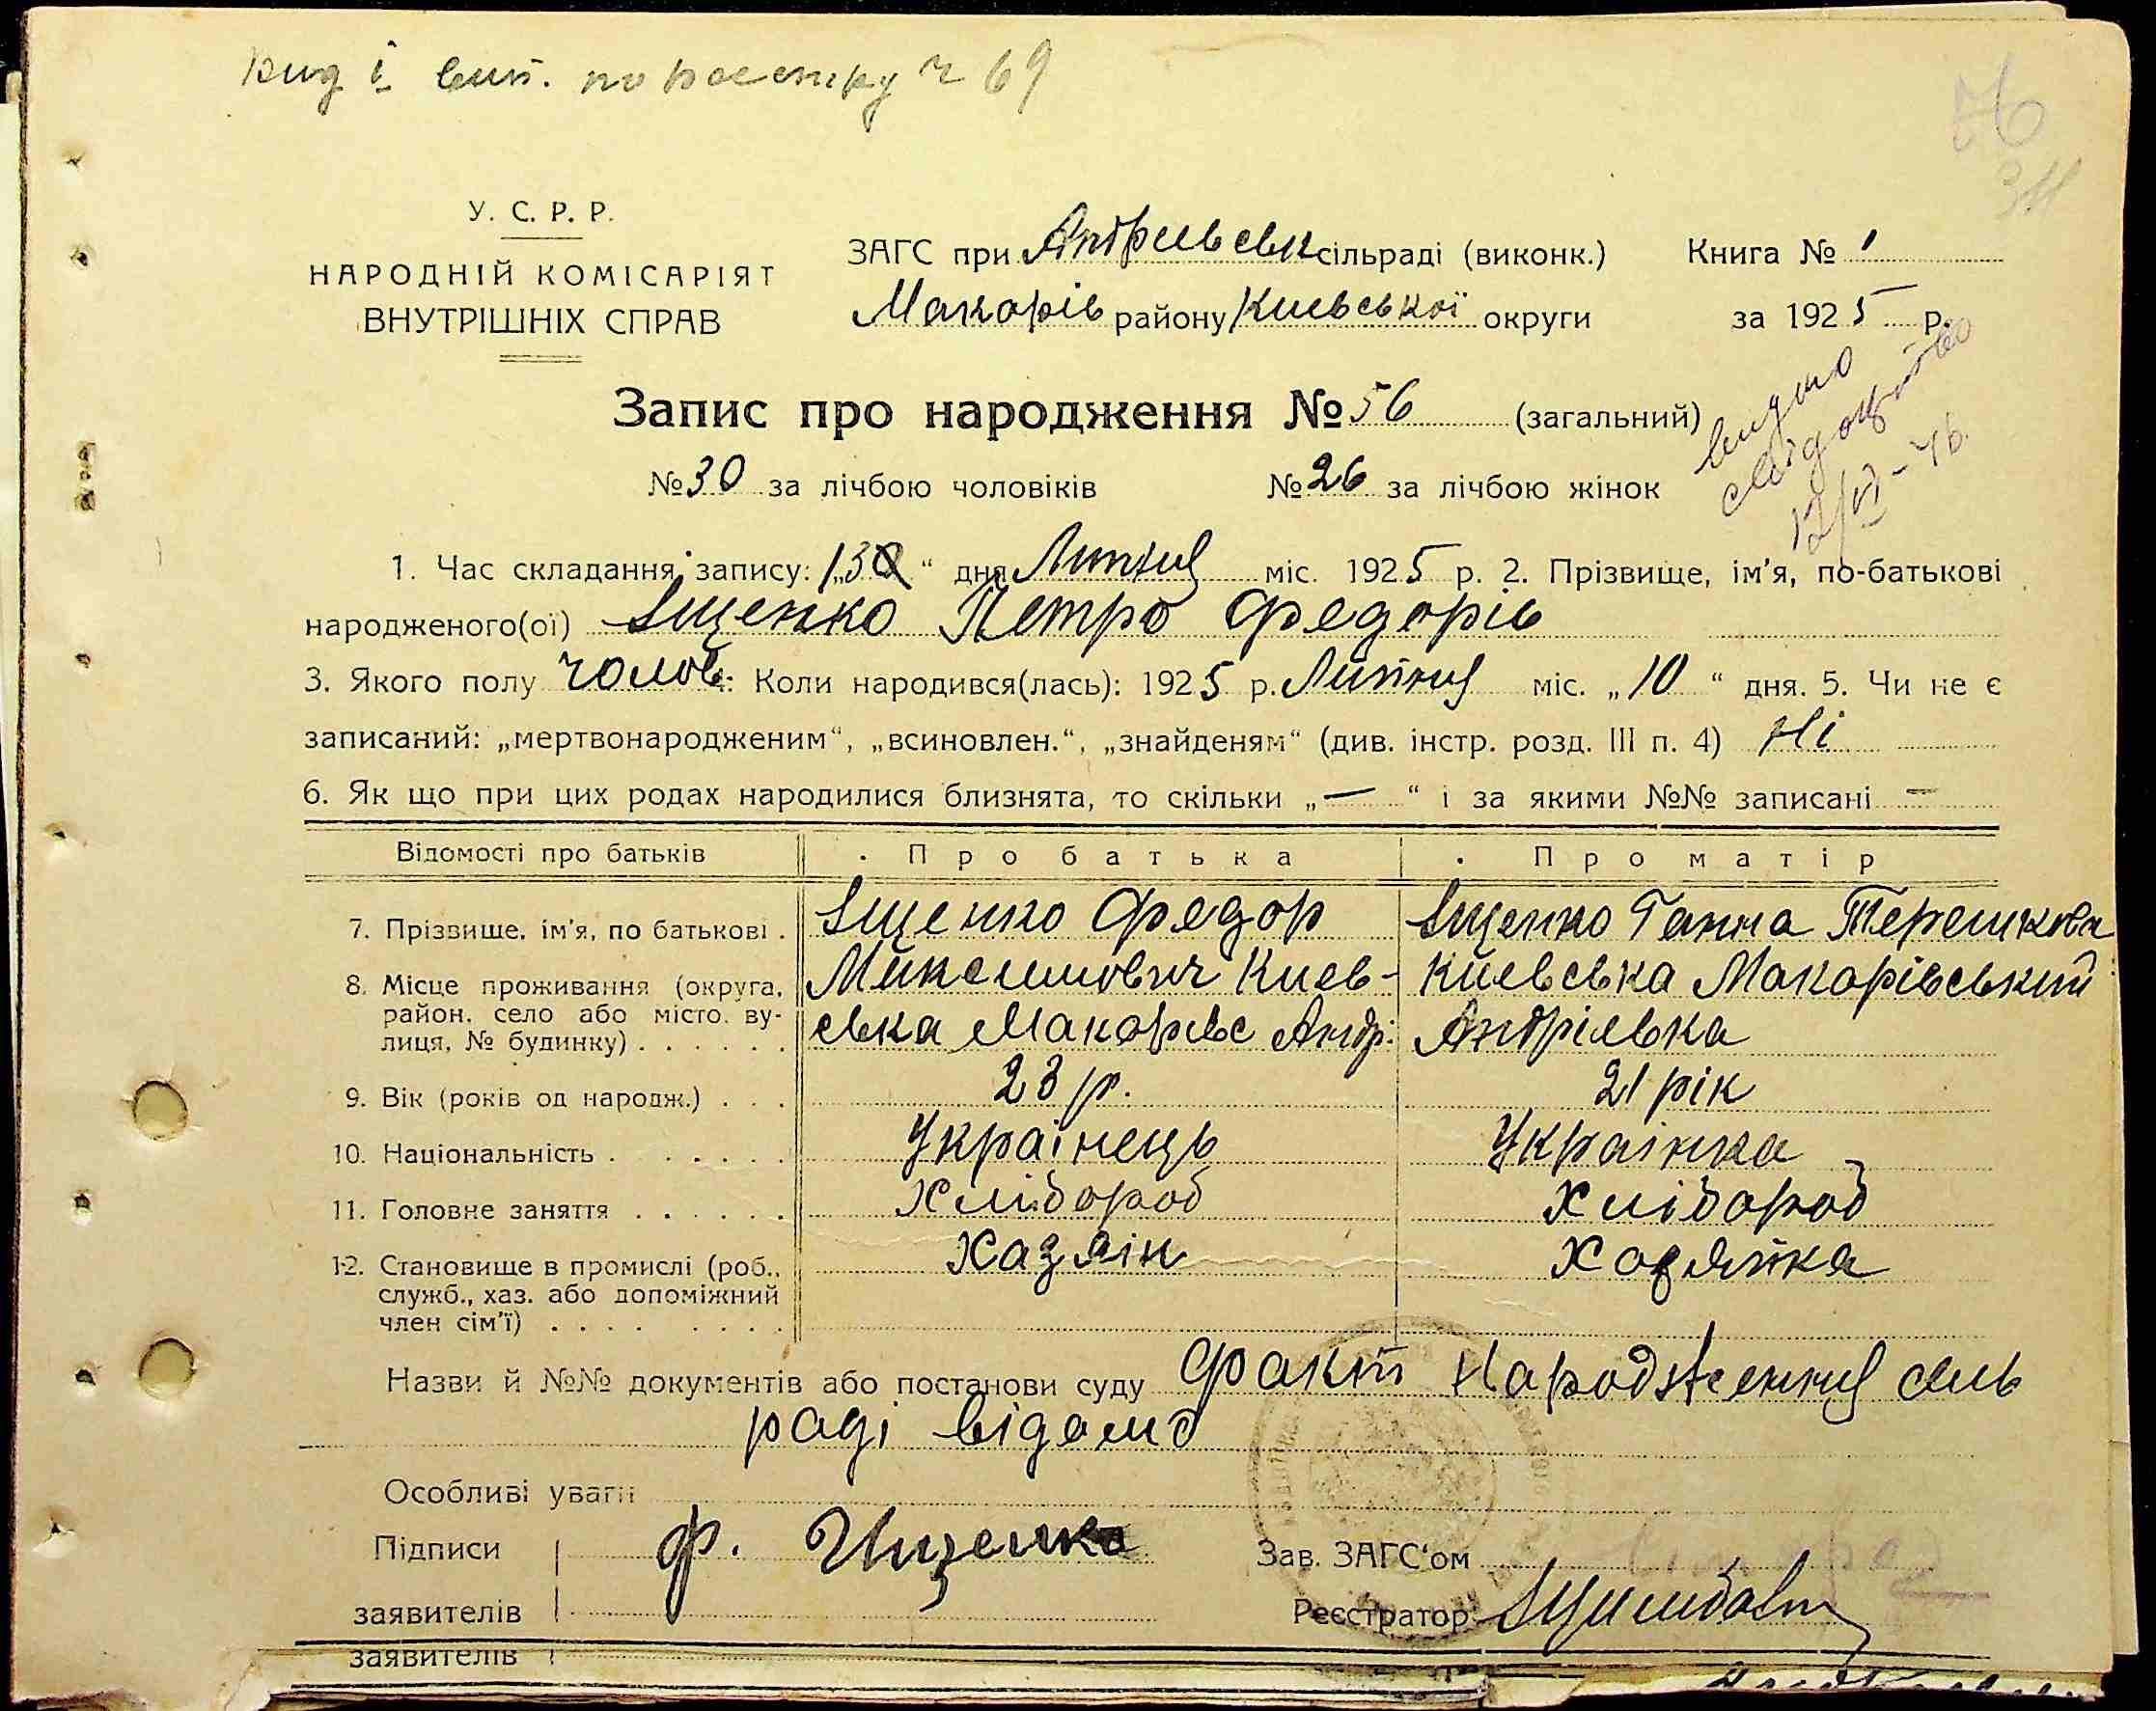 вид і вип. по реєстру ч 69
56
У. С. Р. Р.
НАРОДНІЙ КОМІСАРІЯТ
ВНУТРІШНІХ СПРАВ
ЗАГС при Андриевськ сільраді (виконк.) Книга № 1
Макарів району Киевської округи за 1925 р.
Запис про народження № 56 (загальний)
видано
свідоцтво
12/VI-46.
№ 30 за лічбою чоловіків № 26 за лічбою жінок
1. Час складання запису: „13“ дня Липня міс. 1925 р. 2. Прізвище, ім’я, по-батькові
народженого(ої) Іщенко Петро Федорів
3. Якого полу чолов. 4. Коли народився(лась): 1925 р. Липня міс. „10“ дня. 5. Чи не є
записаний: „мертвонародженим“, „всиновлен.“, „знайденям“ (див. інстр. розд. III п. 4) Ні
6. Як що при цих родах народилися близнята, то скільки „—“ і за якими №№ записані —
Відомості про батьків Про батька Про матір
7. Прізвище, ім’я, по батькові . Іщенко Федор Іщенко Ганна Терешкова
8. Місце проживання (округа, Максимович Киев- Киевська Макарівський
район, село або місто, ву- ська Макарівс Андрі. Андріевка
лиця, № будинку) . . . . . .
9. Вік (років од народж.) . . . 23 р. 21 рік
10. Національність . . . . . . Українець Українка
11. Головне заняття . . . . . . Хлібороб Хлібороб
12. Становище в промислі (роб., Хазяін Хазяйка
служб., хаз. або допоміжний
член сім’ї) . . . . . . . .
Назви й №№ документів або постанови суду Факт Народження сель
раді відамо
Особливі уваги
Підписи Ф. Ищенко Зав. ЗАГС‘ом
заявителів Реєстратор
заявителів